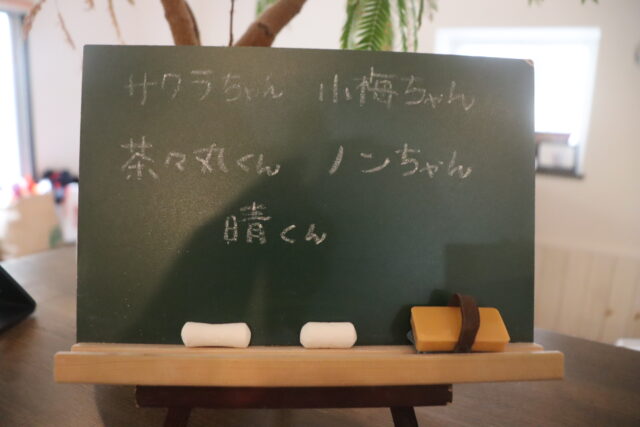 サクラちゃん 小梅ちゃん
茶々丸くん ノンちゃん
晴くん